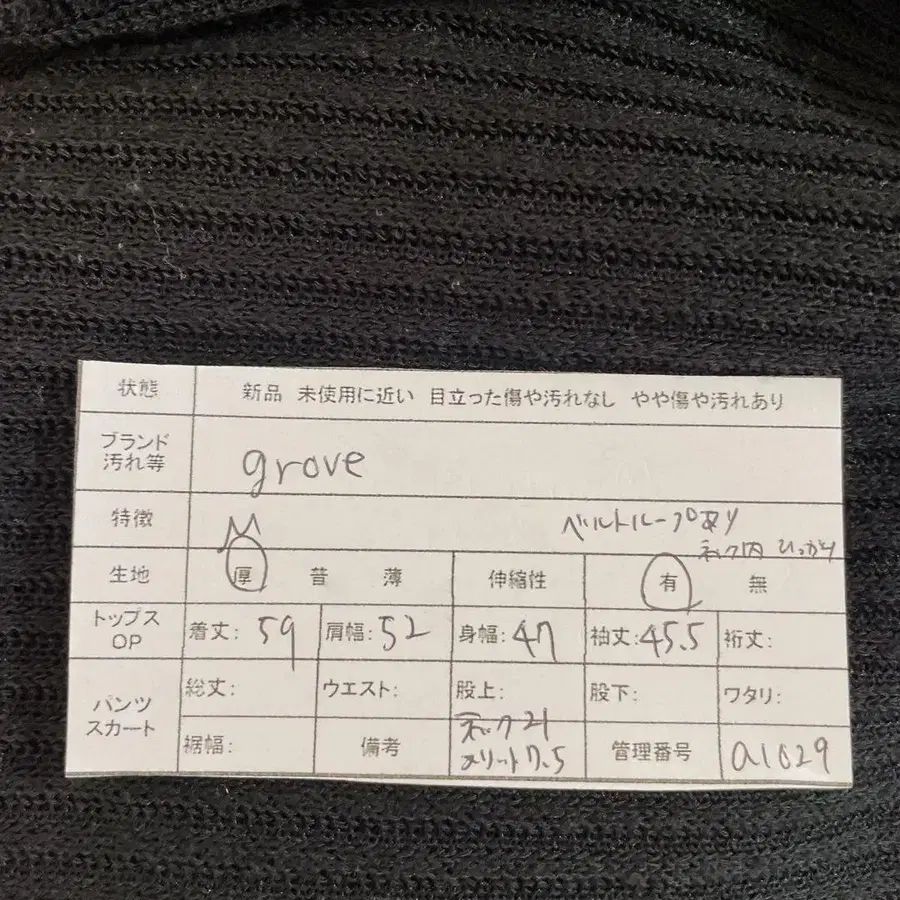 状態 新品 未使用に近い 目立った傷や汚れなし やや傷や汚れあり
ブランド
汚れ等
grove
特徴 M ベルトループあり
ネック内 ひっかり
生地 厚 普 薄 伸縮性 有 無
トップス
OP
着丈: 59 肩幅: 52 身幅: 47 袖丈: 45.5 裄丈:
パンツ
スカート
総丈: ウエスト: 股上: 股下: ワタリ:
裾幅: 備考 ネック21
スリット7.5
管理番号 a1029